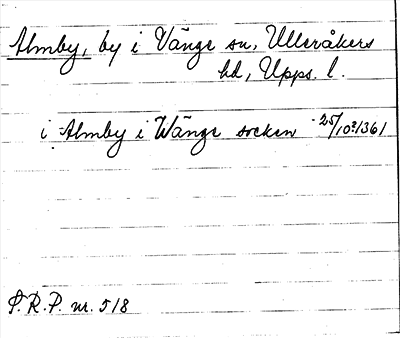 Almby, by i Vänge sn, Ulleråkers
hd, Upps. l.
i Almby i Wänge socken 25/10? 1361
S.R.P. nr. 518